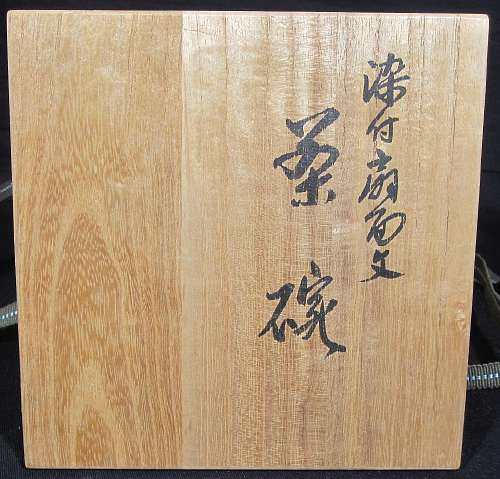 染付扇面文
茶碗